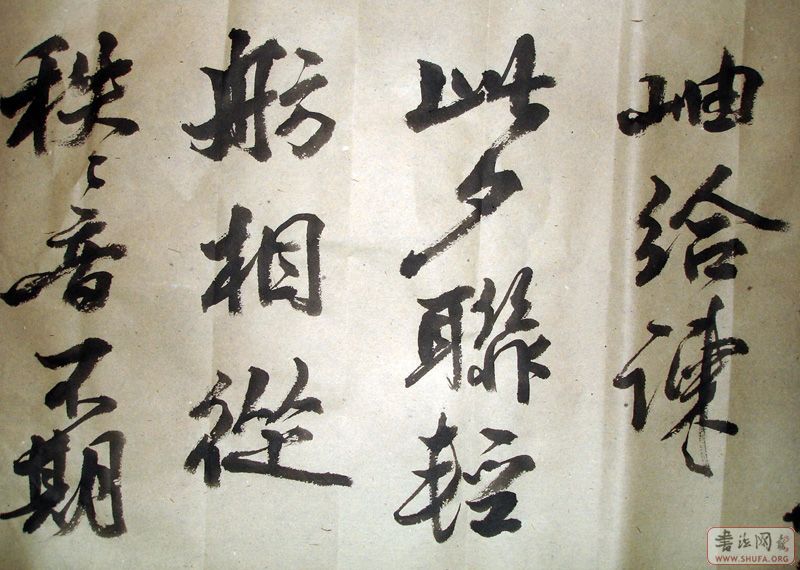 岫給諫
此夕聯輕
舫相從
秩々音不期
書法网
WWW.SHUFA.ORG